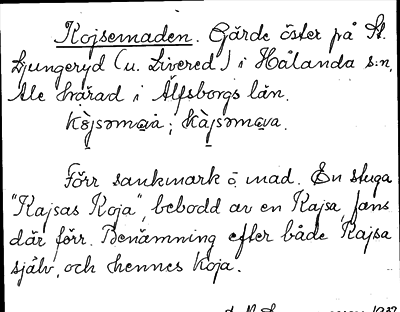 Kojsemaden. Gärde öster på St.
Ljungeryd (u. Livered) i Hålanda s:n,
Ale härad i Älfsborgs län.
Förr sankmark o. mad. En stuga
"Kajsas Koja", bebodd av en Kajsa, fans
där förr. Benämning efter både Kajsa
själv, och hennes koja.